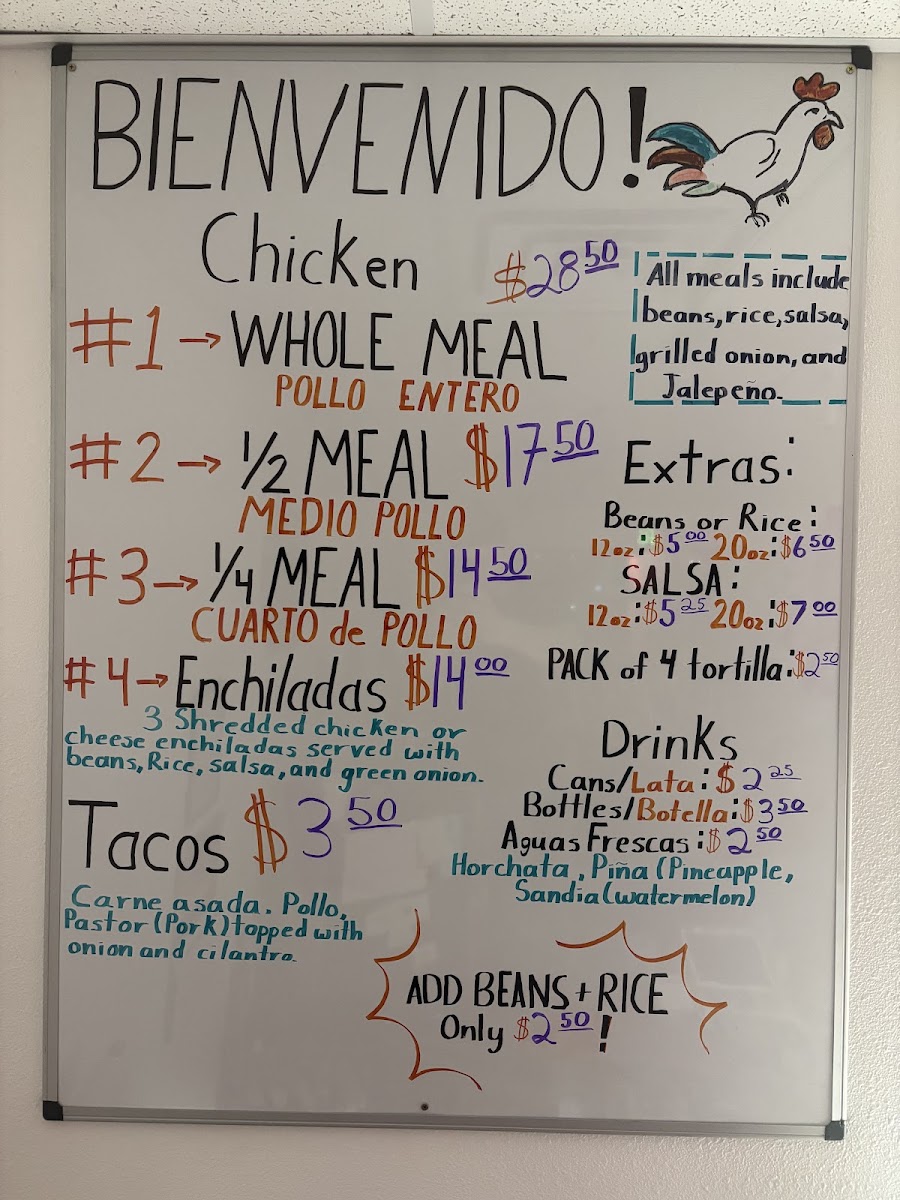 BIENVENIDO!
Chicken
$28 50
#1 → WHOLE MEAL
POLLO ENTERO
#2 → 1/2 MEAL $17 50
MEDIO POLLO
#3 → 1/4 MEAL $14 50
CUARTO de POLLO
#4 → Enchiladas $14 00
3 Shredded chicken or
cheese enchiladas served with
beans, Rice, salsa, and green onion.
Tacos $3 50
Carne asada. Pollo,
Pastor (Pork) topped with
onion and cilantro.
All meals include
beans, rice, salsa,
grilled onion, and
Jalepeño.
Extras:
Beans or Rice:
12oz: $5 00 20oz: $6 50
SALSA:
12oz: $5 25 20oz: $7 00
PACK of 4 tortilla: $2 50
Drinks
Cans/Lata: $2 25
Bottles/Botella: $3 50
Aguas Frescas: $2 50
Horchata, Piña (Pineapple,
Sandia (watermelon)
ADD BEANS + RICE
Only $2 50!